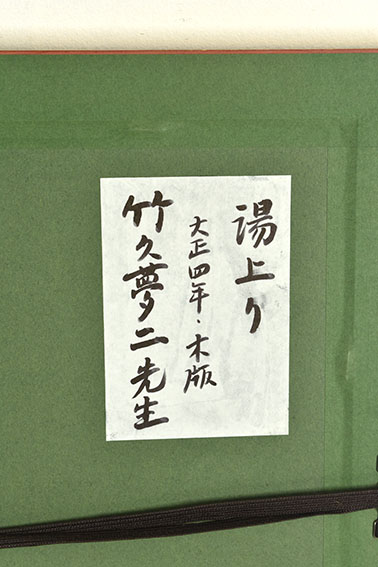 湯上り
大正四年・木版
竹久夢二先生